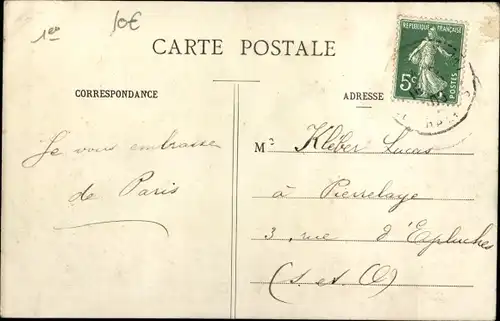 1ee 10€
CARTE POSTALE
REPUBLIQUE FRANÇAISE
5c POSTES
CORRESPONDANCE
ADRESSE
Je vous embrasse
de Paris
Mr Kléber Lucas
à Pierrelaye
3, rue d'Epluches
(S. et O)